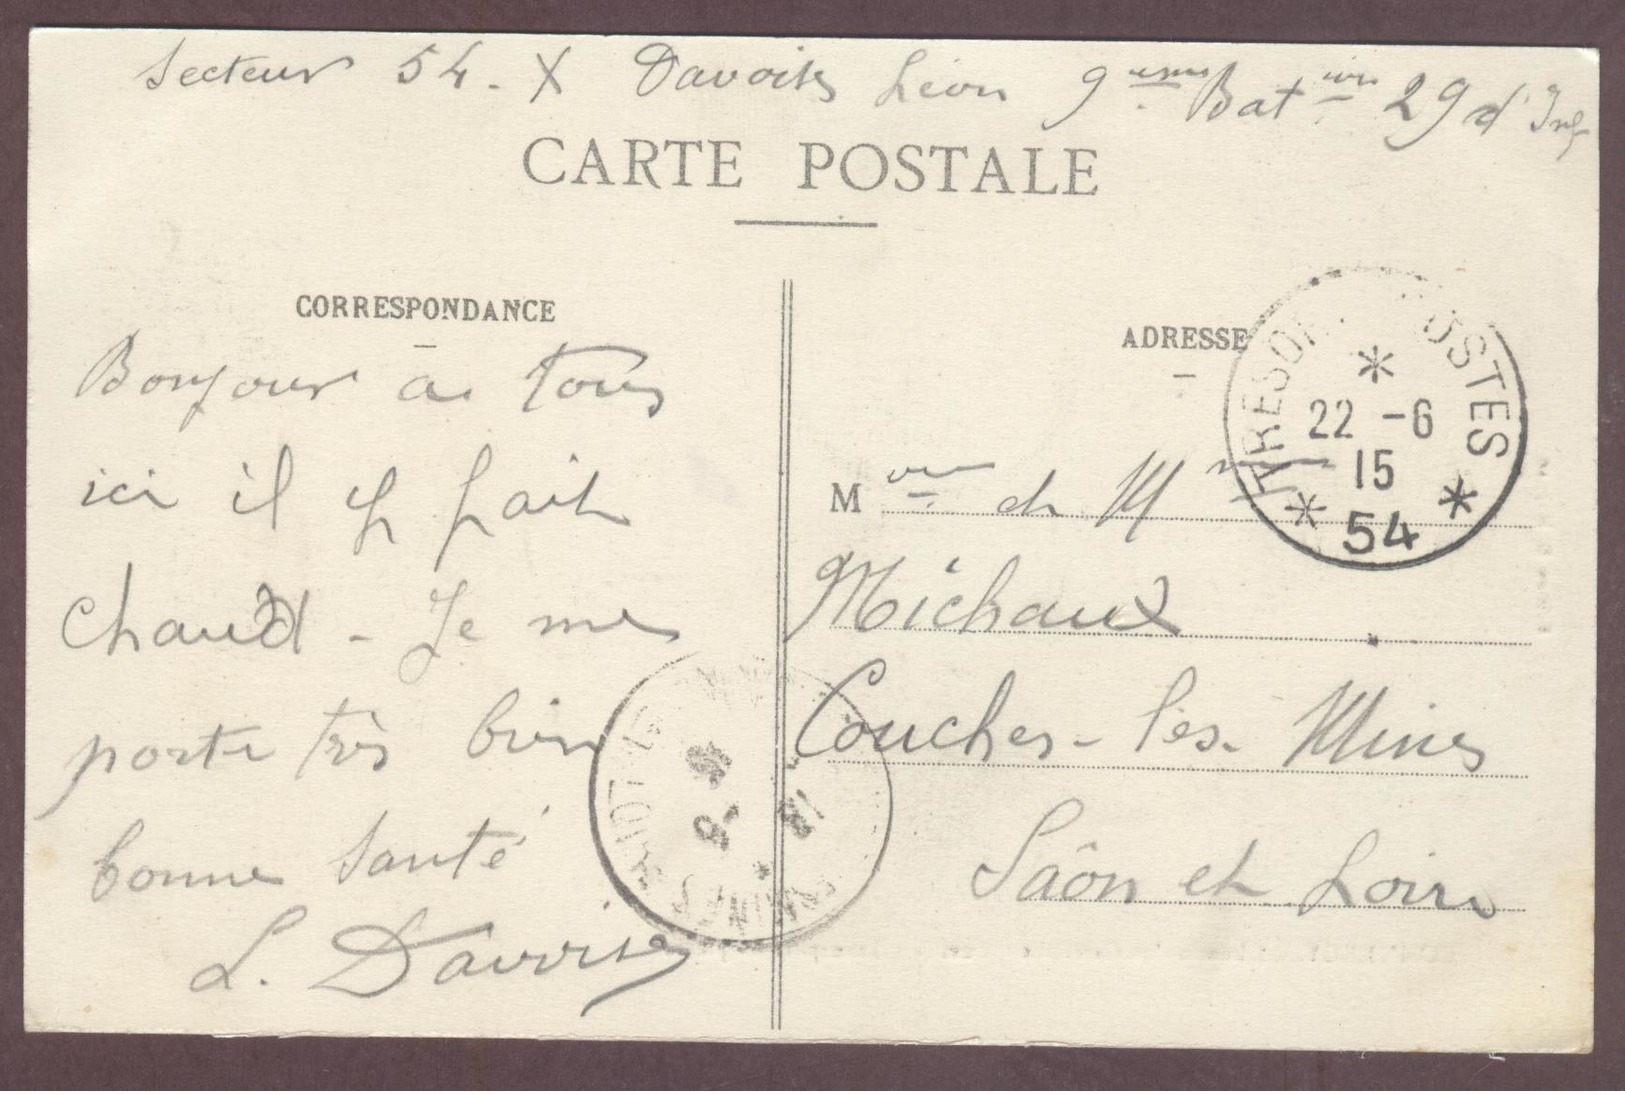 Secteur 54. X Davoise Léon 9ème Bation 29 d'Inf
CARTE POSTALE
CORRESPONDANCE
Bonjour a tous
ici il y fait
chaud - Je me
porte très bien
bonne santé
L. Davoise
ADRESSE
TRESOR POSTES
22 -6
15
54
M et M
Michaux
Couches-les-Mines
Saôn et Loire